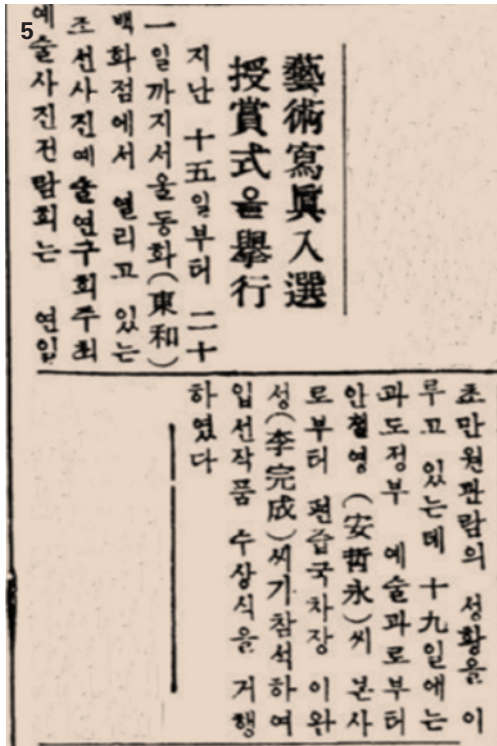 5
藝術寫眞入選
授賞式을擧行
지난 十五일부터 二十
一일까지서울동화(東和)
백화점에서 열리고 있는
조선사진예술연구회주최
예술사진전람회는 연일
초만원관람의 성황을 이
루고 있는데 十九일에는
과도정부 예술과로부터
안철영 (安哲永)씨 본사
로부터 편즙국차장 이완
성(李完成)씨가참석하여
입선작품 수상식을 거행
하였다